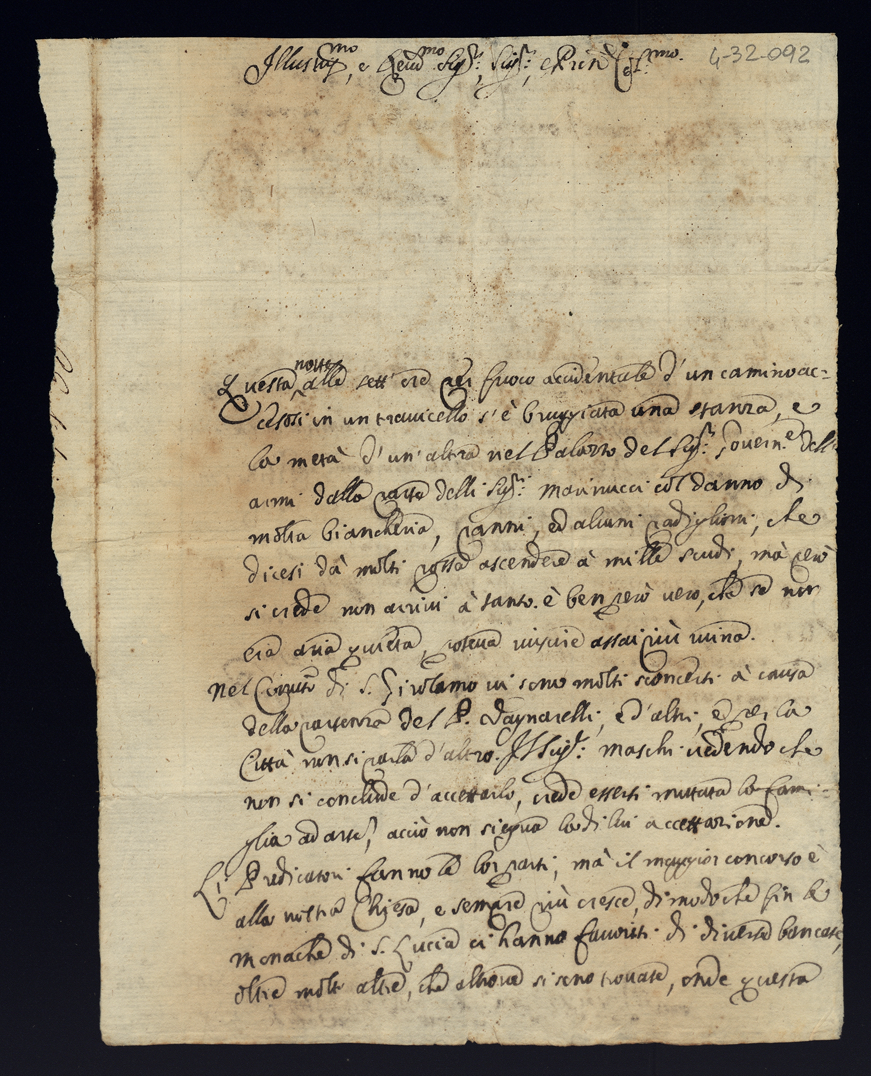 4-32-092
Illustr.mo, e Rev.mo Sig.r, Sig.r, e Pron
notte
Questa alle sett'ore per fuoco accidentale d'un camino ac=
cesosi in un travicello s'è bruggiata una stanza, e
la metà d'un'altra nel Palazzo del Sig.r Govern.e dell'
armi dalla parte delli Sig.ri Marinucci col danno di
molta biancheria, panni, ed alcuni padiglioni, che
dicesi dà molti possa ascendere à mille scudi, mà però
si crede non arrivi à tanto. è ben però vero, che se non
era aria quieta, poteva riuscire assai più ruina.
Nel Convento di S. Girolamo vi sono molti sconcerti à causa
della partenza del P. Vagnarelli, e d'altri, e per la
Città non si parla d'altro. Il Sig.r Maschi vedendo che
non si conclude d'accettarlo, crede esserti muttata la fami-
glia ad arte, acciò non siegua la di lui accettazione.
Li Predicatori fanno le lor parti, mà il maggior concorso è
alla nostra Chiesa, e sempre più cresce, di modo che fin le
monache di S. Lucia ci hanno favoriti di diverse bancate,
oltre molte altre, che altrove si sono trovate, onde questa